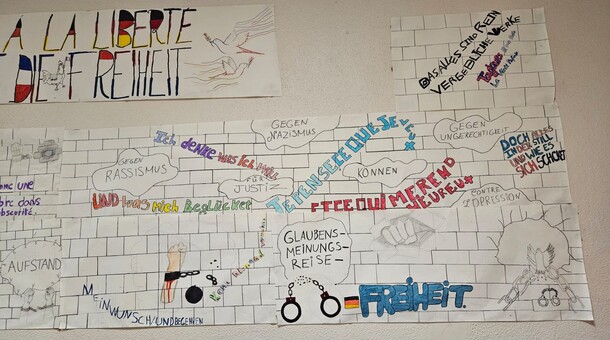 A LA LIBERTE
DIE FREIHEIT
DAS ALLES SIND REIN
VERGEBLICHE WERKE
GEGEN
NAZISMUS
GEGEN
UNGERECHTIGKEIT
Ich denke was ich will
JE PENSE CE QUE JE VEUX
GEGEN
RASSISMUS
FÜR
JUSTIZ
KÖNNEN
DOCH ALLES
IN DER STILL
UND WIE ES
SICH SCHICKT
UND was mich Beglücket
ET CE QUI ME REND
HEUREUX
CONTRE
L'OPRESSION
GLAUBENS-
MEINUNGS-
REISE-
FREIHEIT.
AUFSTAND
MEIN WUNSCH UND BEGEHREN